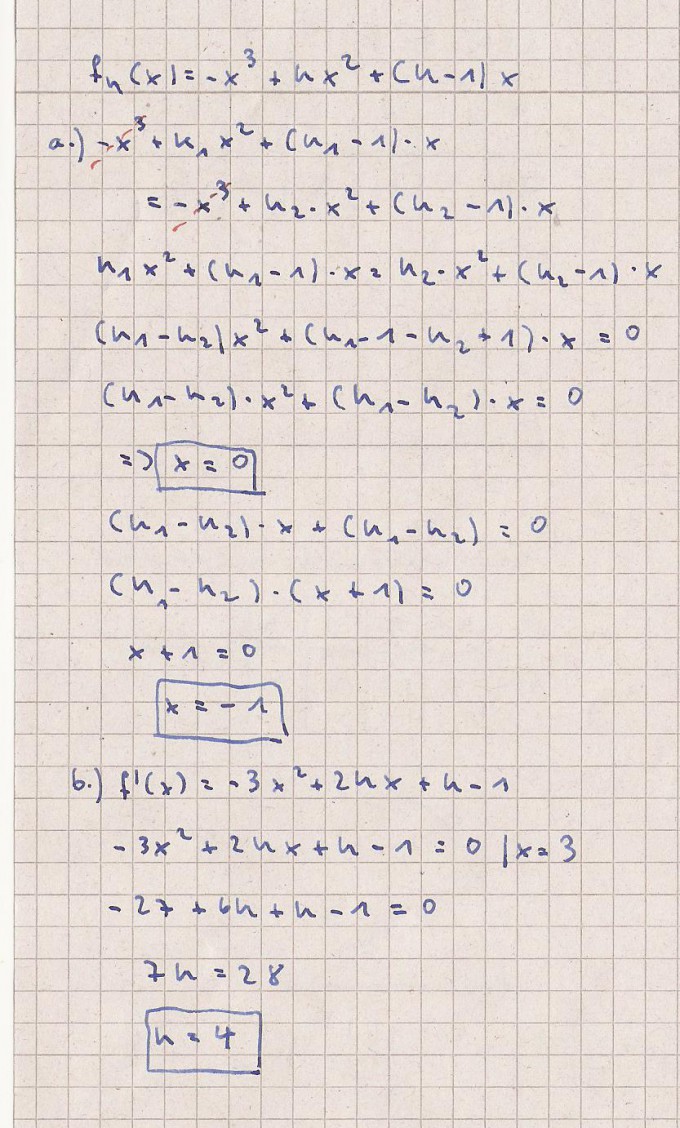 fₖ(x) = -x³ + kx² + (k-1)x
a.) -x³ + k₁x² + (k₁-1)·x
= -x³ + k₂·x² + (k₂-1)·x
k₁x² + (k₁-1)·x = k₂·x² + (k₂-1)·x
(k₁-k₂)x² + (k₁-1-k₂+1)·x = 0
(k₁-k₂)·x² + (k₁-k₂)·x = 0
=> x = 0
(k₁-k₂)·x + (k₁-k₂) = 0
(k₁-k₂)·(x+1) = 0
x + 1 = 0
x = -1
b.) f'(x) = -3x² + 2kx + k - 1
-3x² + 2kx + k - 1 = 0 | x = 3
-27 + 6k + k - 1 = 0
7k = 28
k = 4